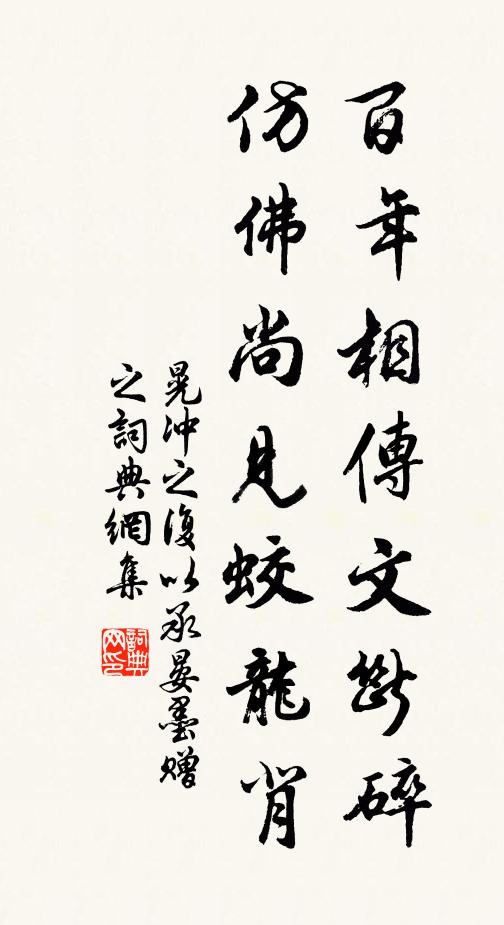 百年相傳文斷碎
仿佛尚見蛟龍背
晁沖之復以承晏墨贈
之詞典網集
詞典网印